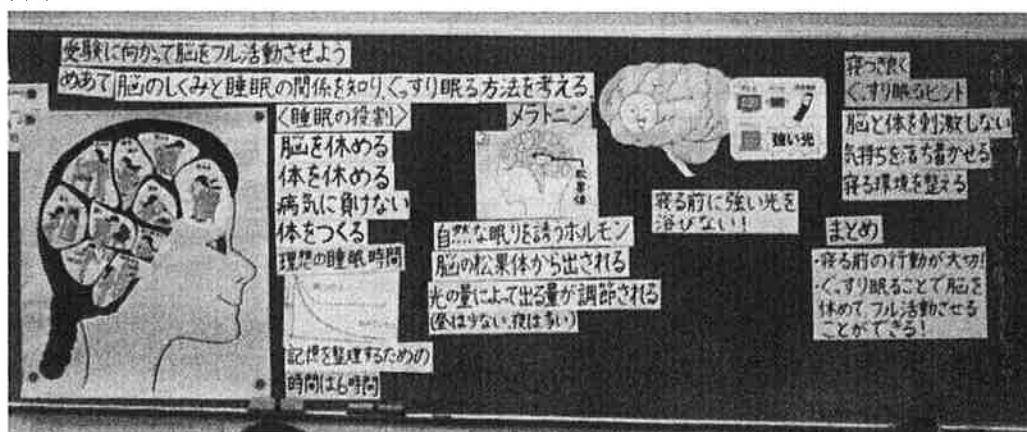 受験に向かって脳をフル活動させよう
めあて 脳のしくみと睡眠の関係を知り、ぐっすり眠る方法を考える。
〈睡眠の役割〉
脳を休める
体を休める
病気に負けない
体をつくる
理想の睡眠時間
記憶を整理するための
時間は6時間
メラトニン
松果体
自然な眠りを誘うホルモン
脳の松果体から出される
光の量によって出る量が調節される
(昼は少ない、夜は多い)
強い光
寝る前に強い光を
浴びない!
寝つき良く
ぐっすり眠るヒント
脳と体を刺激しない
気持ちを落ち着かせる
寝る環境を整える
まとめ
・寝る前の行動が大切!
・ぐっすり眠ることで脳を
休めて、フル活動させる
ことができる!